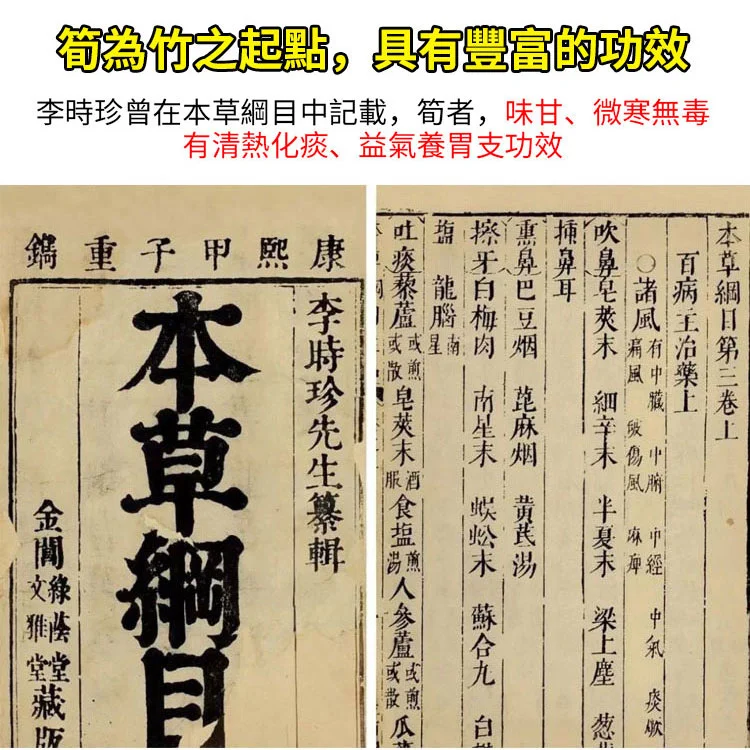 筍為竹之起點，具有豐富的功效
李時珍曾在本草綱目中記載，筍者，味甘、微寒無毒
有清熱化痰、益氣養胃支功效
康熙甲子重鐫
李時珍先生纂輯
本草綱目
金閶綠蔭堂文雅堂藏版
本草綱目第三卷上
百病主治藥上
○諸風 有中臟 中腑 中經 中氣 痰厥
痛風 破傷風 麻痺
吹鼻皂莢末 細辛末 半夏末 梁上塵 葱
插鼻耳
熏鼻巴豆烟 萆麻烟 黄芪湯
擦牙白梅肉 南星末 蜈蚣末 蘇合丸 白
塩 龍腦南星
吐痰藜蘆或煎或散 皂莢末酒服 食塩煎湯 人參蘆或煎或散 瓜